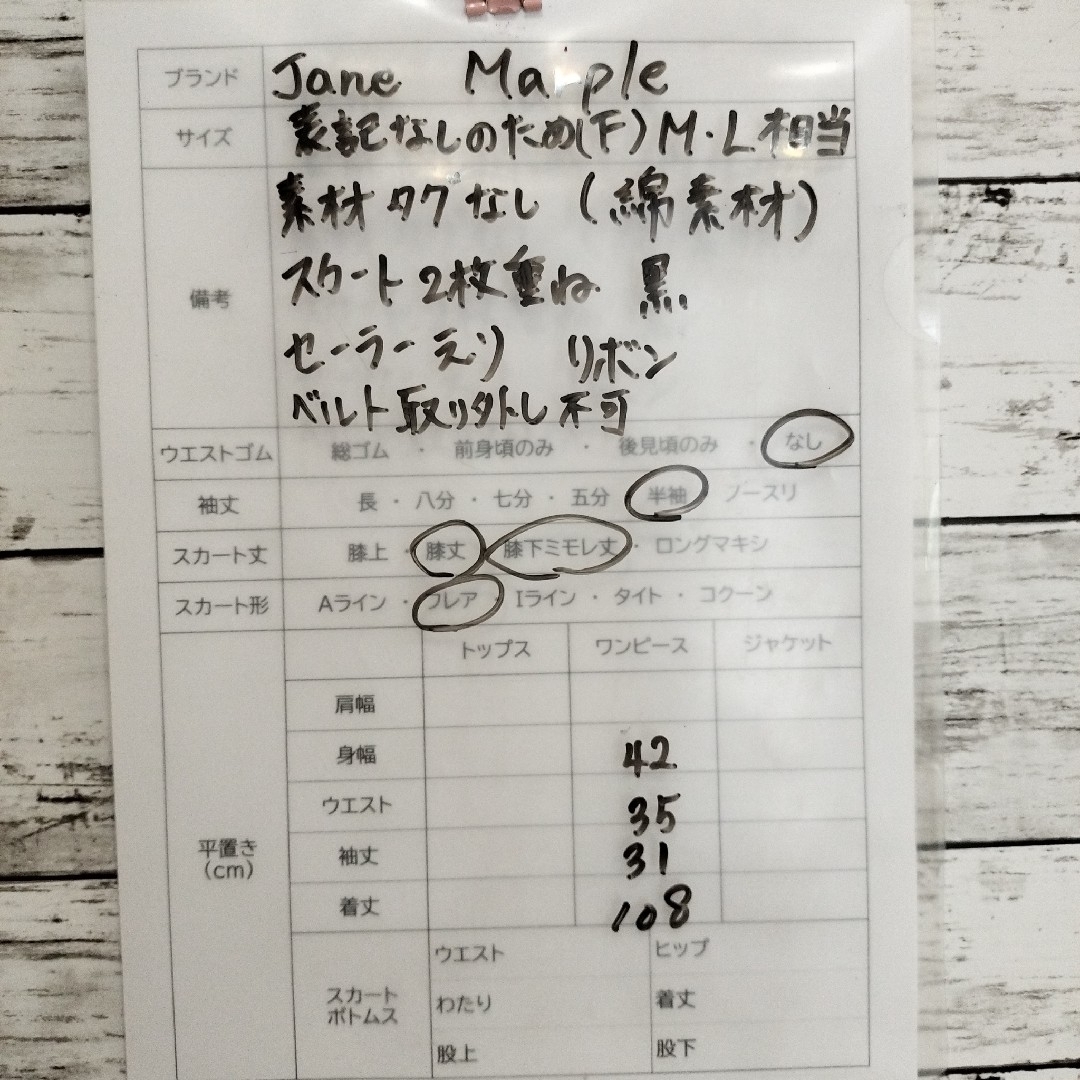 ブランド Jane Marple
サイズ 表記なしのため(F)M・L相当
素材タグなし (綿素材)
スカート2枚重ね 黒
備考
セーラーえり リボン
ベルト取り外し不可
ウエストゴム 総ゴム ・ 前身頃のみ ・ 後見頃のみ ・ なし
袖丈 長 ・ 八分 ・ 七分 ・ 五分 半袖 ノースリ
スカート丈 膝上 ・ 膝丈 膝下ミモレ丈 ・ ロングマキシ
スカート形 Aライン ・ フレア ・ Iライン ・ タイト ・ コクーン
トップス ワンピース ジャケット
肩幅
身幅 42
ウエスト 35
平置き
(cm)
袖丈 31
着丈 108
ウエスト ヒップ
スカート
ボトムス
わたり 着丈
股上 股下